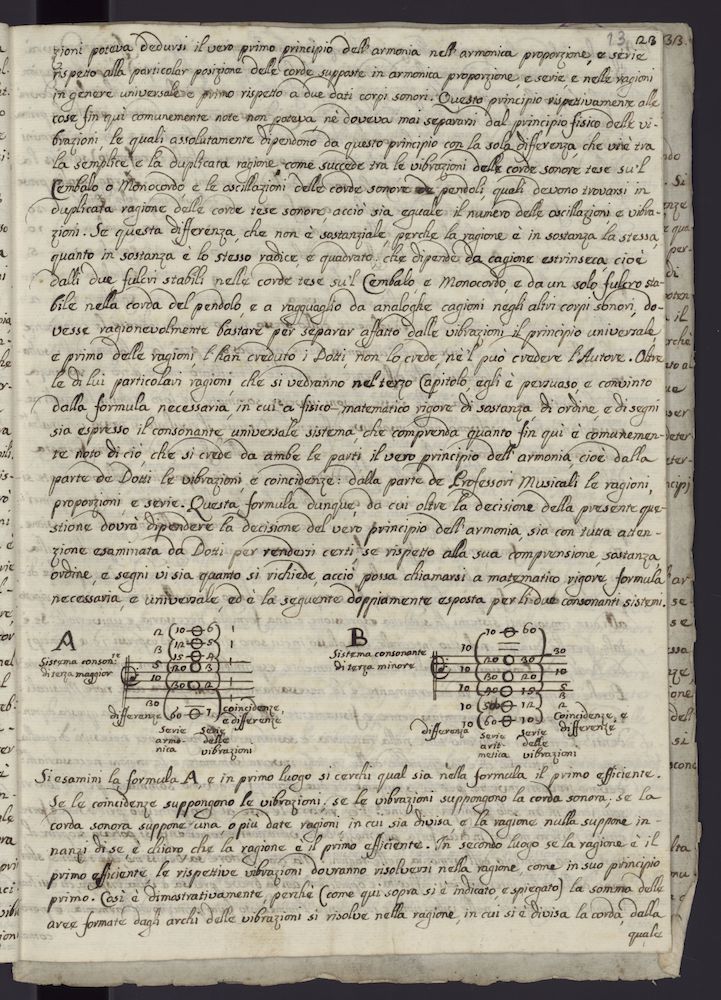 13. 23
zioni poteva dedursi il vero primo principio dell'armonia nell'armonica proporzione, e serie
rispetto alla particolar posizione delle corde supposte in armonica proporzione, e serie, e nelle ragioni
in genere universale, e primo rispetto a due dati corpi sonori. Questo principio rispettivamente alle
cose fin quì comunemente note non poteva, nè doveva mai separarsi dal principio fisico delle vi-
brazioni, le quali assolutamente dipendono da questo principio con la sola differenza, che vi è tra
la semplice, e la duplicata ragione, come succede tra le vibrazioni delle corde sonore tese su'l
Cembalo o Monocordo, e le oscillazioni delle corde sonore pendoli, quali devono trovarsi in
duplicata ragione delle corde tese sonore, acciò sia eguale il numero delle oscillazioni, e vibra-
zioni. Se questa differenza, che non è sostanziale, perchè la ragione è in sostanza la stessa,
quanto in sostanza è lo stesso radice, e quadrato, che dipende da cagione estrinseca, cioè
dalli due fulcri stabili nelle corde tese su'l Cembalo, e Monocordo, e da un solo fulcro sta-
bile nella corda del pendolo, e a ragguaglio da analoghe cagioni negli altri corpi sonori, do-
vesse ragionevolmente bastare per separar affatto dalle vibrazioni il principio universale,
e primo delle ragioni, l'han creduto i Dotti, non lo crede, nè'l può credere l'Autore. Oltre
le di lui particolari ragioni, che si vedranno nel terzo Capitolo, egli è persuaso, e convinto
dalla formula necessaria, in cui a fisico-matematico rigore di sostanza, di ordine, e di segni
sia espresso il consonante universale sistema, che comprenda quanto fin quì è comunemen-
te noto di ciò, che si crede da ambe le parti il vero principio dell'armonia, cioè dalla
parte de Dotti le vibrazioni, e coincidenze: dalla parte de Professori Musicali le ragioni,
proporzioni, e serie. Questa formula dunque, da cui oltre la decisione della presente que-
stione dovrà dipendere la decisione del vero principio dell'armonia, sia con tutta atten-
zione esaminata da Dotti per rendersi certi, se rispetto alla sua comprensione, sostanza,
ordine, e segni vi sia quanto si richiede, acciò possa chiamarsi a matematico rigore formula
necessaria, e universale, ed è la seguente doppiamente esposta per li due consonanti sistemi.
A
Sistema conson.te
di terza maggior
2 10 6 1
3 12 5 1
15 4 1
5 20 3
10 30 2
30 60 1
differenze
coincidenze,
e differenze
Serie armo-nica
Serie delle vibrazioni
B
Sistema consonante
di terza minore
10 60
10 30
20 30
10 10
30 20
10 40 15 5
3
10 50 12 2
10 60 10
differenza
Coincidenze, e
differenze
Serie arit-metica
Serie delle vibrazioni
Si esamini la formula A, e in primo luogo si cerchi qual sia nella formula il primo efficiente.
Se le coincidenze suppongono le vibrazioni: se le vibrazioni suppongono la corda sonora: se la
corda sonora suppone una o più date ragioni, in cui sia divisa, e la ragione nulla suppone in-
nanzi di se, è chiaro che la ragione è il primo efficiente. In secondo luogo se la ragione è il
primo efficiente, le rispettive vibrazioni dovranno risolversi nella ragione, come in suo principio
primo. Così è dimostrativamente, perchè (come quì sopra si è indicato, e spiegato) la somma delle
aree formate dagli archi delle vibrazioni si risolve nella ragione, in cui si è divisa la corda, dalla
quale